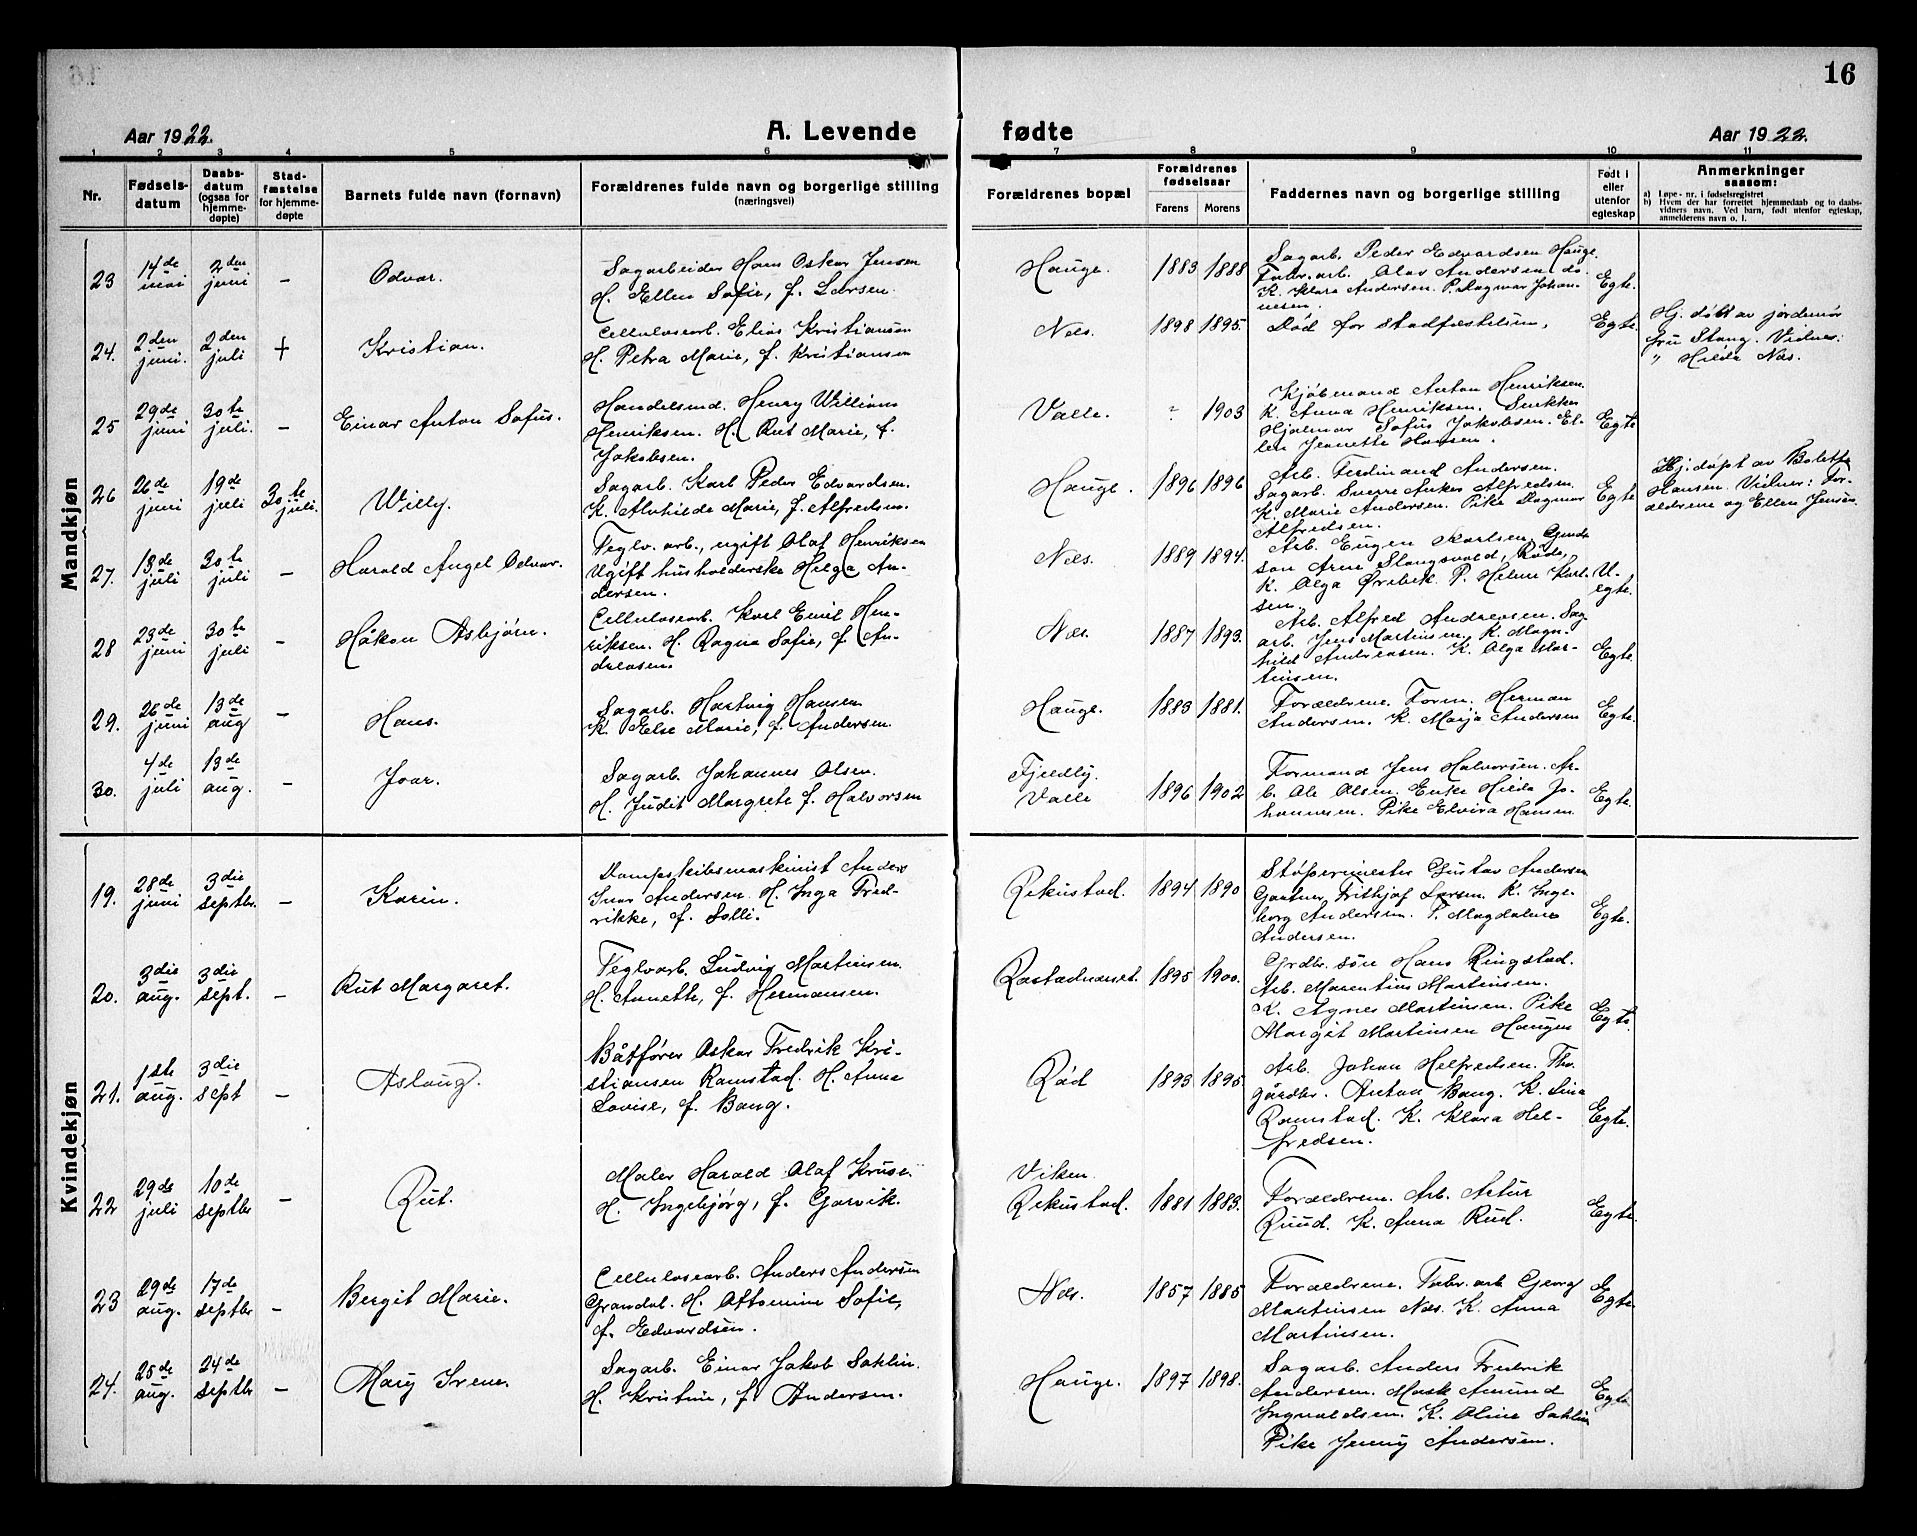 16
Aar 1922.
A. Levende
fødte
Aar 1922.
1 2 3 4 5 6 7 8 9 10 11
Nr.
Fødsels-
datum
Daabs-
datum
(ogsaa for
hjemme-
døpte)
Stad-
fæstelse
for hjemme-
døpte
Barnets fulde navn (fornavn)
Forældrenes fulde navn og borgerlige stilling
(næringsvei)
Forældrenes bopæl
Forældrenes
fødselsaar
Farens Morens
Faddernes navn og borgerlige stilling
Født i
eller
utenfor
egteskap
Anmerkninger
saasom:
a) Løpe-nr. i fødselsregistret
b) Hvem der har forrettet hjemmedaab og to daabs-
vidners navn. Ved barn, født utenfor egteskap,
anmelderens navn o. l.
Mandkjøn
23
14de
mai
2den
juni
-
Odvar.
Sagarbeider Hans Oskar Jensen
H. Ellen Sofie, f. Larsen.
Hauge.
1883 1888
Sagarb. Peder Edvardsen Hauge.
Fabr. arb. Olav Andersen do.
K. Klara Andersen. P. Dagmar Johan-
nesen.
Egte.
24.
2den
juni.
2den
juli
+
Kristian.
Cellulosearb. Elias Kristiansen
H. Petra Marie, f. Kristiansen
Nes.
1898 1895.
Død før stadfæstelsen,
Egte.
Hj. døbt av jordemor
fru Stang. Vidnes:
" Hilda Nes.
25
29de
juni
30te
juli.
-
Einar Anton Sofus.
Handelsmd. Henry William
Henriksen. H. Rut Marie, f.
Jakobsen.
Valle.
? 1903
Kjøbmand Anton Henriksen.
K. Anna Henriksen.
Hjalmar Sofus Jakobsen. El-
len Jeanette Hansen.
Egte
26
26de
juni
19de
juli
30te
juli.
Willy.
Sagarb. Karl Peder Edvardsen.
K. Alvhilde Marie, f. Alfredsen.
Hauge.
1896 1896
Arb. Ferdinand Andersen.
Sagarb. Sverre Anker Alfredsen.
K. Marie Andersen. Pike Dagmar
Alfredsen.
Egte
Hj. døpt av Bolette
Hansen. Vidner: For-
ældrene og Ellen Jensen.
27.
13de
juli
30te
juli
-
Harald Angel Odvar.
Teglv. arb., ugift Olaf Henriksen
Ugift husholderske Helga An-
dersen.
Nes.
1889 1894.
Arb. Eugen Karlsen,
søn Arne Slangsvold, Råde,
K. Olga Ørebek P. Helene Karl-
sen.
U-
egte.
28
23de
juni
30te
juli
-
Håkon Asbjørn.
Cellulosearb. Karl Emil Hen-
riksen. H. Ragna Sofie, f. An-
dreasen
Nes.
1887 1893.
Arb. Alfred Andreasen. Sag
arb. Jens Martinsen, K. Magn-
hild Andreasen. K. Olga Mar-
tinsen.
Egte.
29.
26de
juni
13de
aug
-
Hans.
Sagarb. Hartvig Hansen
K. Else Marie, f. Andersen
Hauge.
1883 1881.
Forældrene. Form. Herman
Andersen. K. Marja Andersen
Egte.
30.
4de
juli
13de
aug.
-
Ivar.
Sagarb. Johannes Olsen.
H. Judit Margrete f. Halvorsen
Fjeldby.
Valle
1896 1902
Formand Jens Halvorsen. Ar-
b. Ole Olsen. Enke Hilda Jo-
hannesen. Pike Elvira Hansen
Egte.
Kvindekjøn
19.
28de
juni
3die
septbr.
-
Karin.
Dampskibsmaskinist Anders
Ivar Andersen. H. Inga Fred-
rikke, f. Solli.
Rekustad.
1894 1890
Støpermester Gustav Andersen
Gartner Frithjof Larsen. K. Inge-
borg Andersen. P. Magdalene
Andersen.
Egte.
20.
3die
aug.
3die
sept.
-
Rut Margaret.
Teglvarb. Ludvig Martinsen.
H. Annette, f. Hermansen.
1895 1900.
Grdbr. søn Hans Ringstad.
Arb. Marentius Martinsen.
K. Agnes Martinsen. Pike
Margit Martinsen Haugen
Egte.
21.
1ste
aug.
3die
sept
-
Aslaug.
Båtfører Oskar Fredrik Kri-
stiansen Ramstad. H. Anna
Lovise, f. Bang.
Rød
1893 1895.
Arb. Johan Helfredsen.
gårdbr. Anton Bang. K. Lina
Ramstad. K. Klara Hel-
fredsen.
Egte.
22
29de
juli
10de
septbr
-
Rut.
Maler Harald Olaf Kruse.
H. Ingebjørg, f. Garvik.
Viken
Rekustad.
1881 1883.
Forældrene. Arb. Artur
Ruud. K. Anna Rud.
Egte.
23
29de
aug.
17de
septbr
-
Bergit Marie.
Cellulosearb. Anders Andersen
Grandal. H. Attomine Sofie,
f. Edvardsen.
Nes.
1857 1885
Forældrene. Fabr. arb Georg
Martinsen Nes. K. Anna
Martinsen.
Egte.
24.
25de
aug.
24de
septbr
-
Mary Irene.
Sagarb. Einar Jakob Sahlin.
H. Kristine, f. Andersen.
Hauge.
1897 1898.
Sagarb. Anders Fredrik
Andersen. Mask Amund
Ingvaldsen. K. Oline Sahlin
Pike Jenny Andersen.
Egte